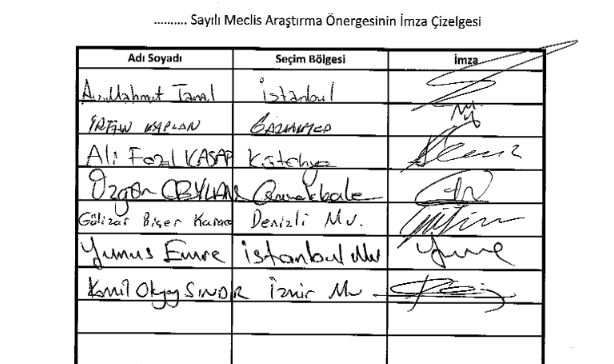 .......... Sayılı Meclis Araştırma Önergesinin İmza Çizelgesi
Adı Soyadı Seçim Bölgesi İmza
Av. Mahmut Tanal İstanbul
İRFAN KAPLAN GAZİANTEP
Ali Fazıl KASAP Kütahya
Özgür CEYLAN Çanakkale
Gülizar Biçer Karaca Denizli Mv.
Yunus Emre İstanbul Mv
Kamil Okyay SINDIR İzmir Mv